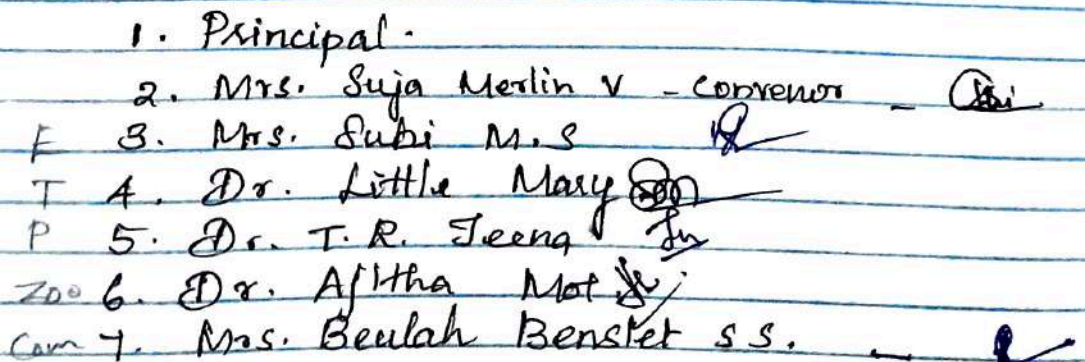 1. Principal.
2. Mrs. Suja Merlin V - Convenor -
F 3. Mrs. Subi M.S
T 4. Dr. Little Mary
P 5. Dr. T. R. Jeena
Zoo 6. Dr. Ajitha Mol
Com 7. Mrs. Beulah Benslet S S. -